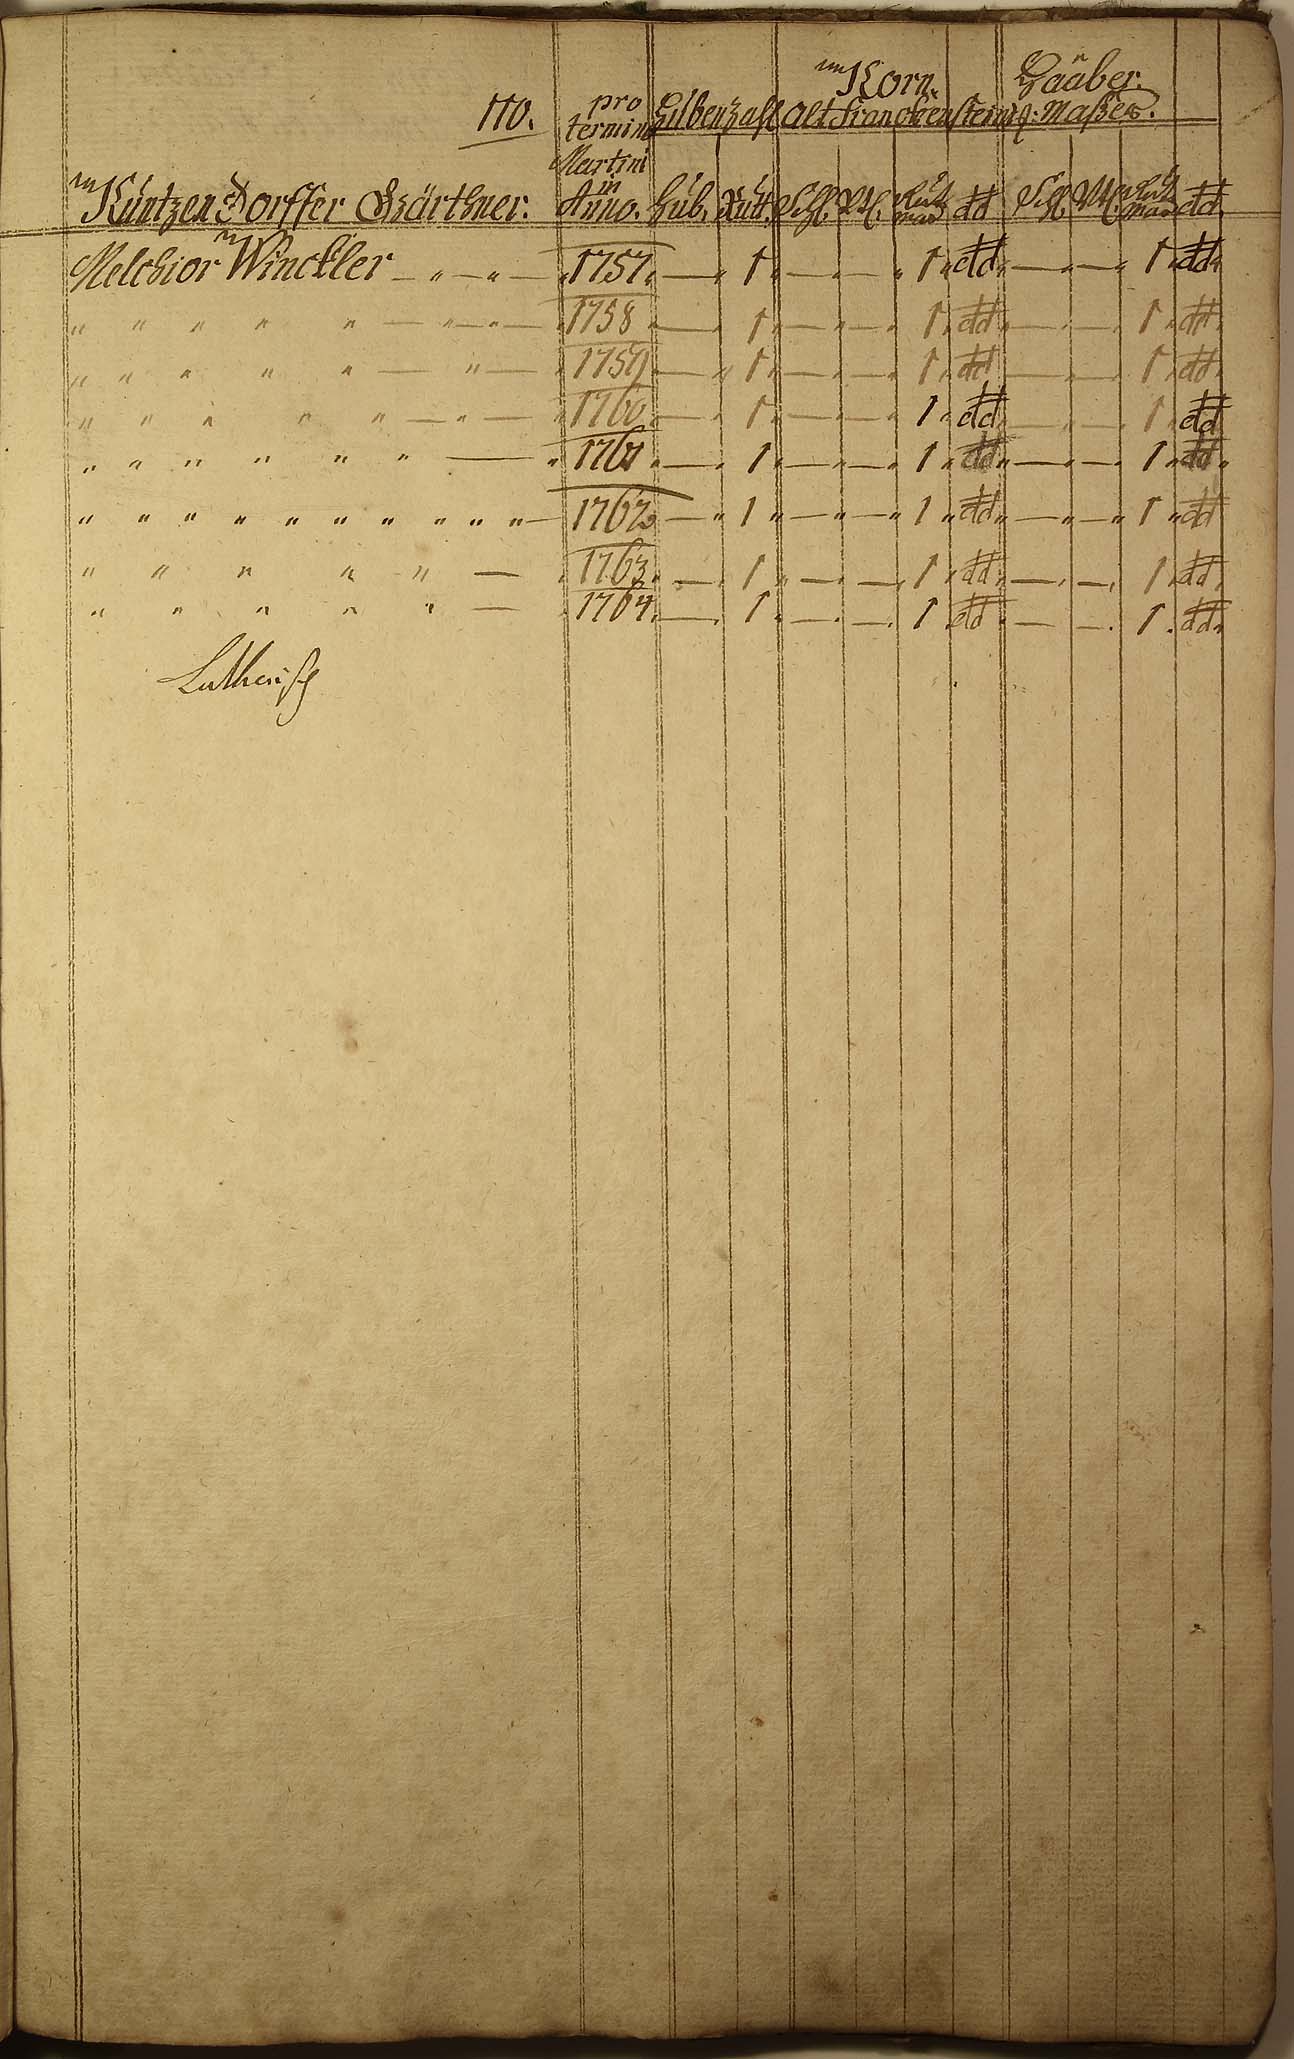 110.
pro termino Martini in Anno.
Korn. Haaber.
Hubenzahl alt Franckensteinis: Maßes.
KüntzenDorffer Gärthner. Hub. Rutt. Schl. Vtl. dd Schl. Vtl. dd
Melchior Winckler — " — " — 1757. — " 1 " — " — " 1 " dd " — " — " 1 " dd "
" " " " " — " — " — 1758 — " 1 " — " — " 1 " dd " — " — " 1 " dd "
" " " " " — " — 1759 — " 1 " — " — " 1 " dd — " — " 1 " dd "
" " " " " — " — 1760 — " 1 " — " — " 1 " dd — " — " 1 " dd
" " " " " " — " 1761 " — " 1 " — " — " 1 " dd " — " — " 1 " dd "
" " " " " " " " " " " — 1762 — " 1 " — " — " 1 " dd " — " — " 1 " dd
" " " " " — 1763 " — " 1 " — " — " 1 " dd " — " — " 1 " dd "
" " " " " — 1764 " — " 1 " — " — " 1 " dd " — — " 1 " dd "
Lutherisch